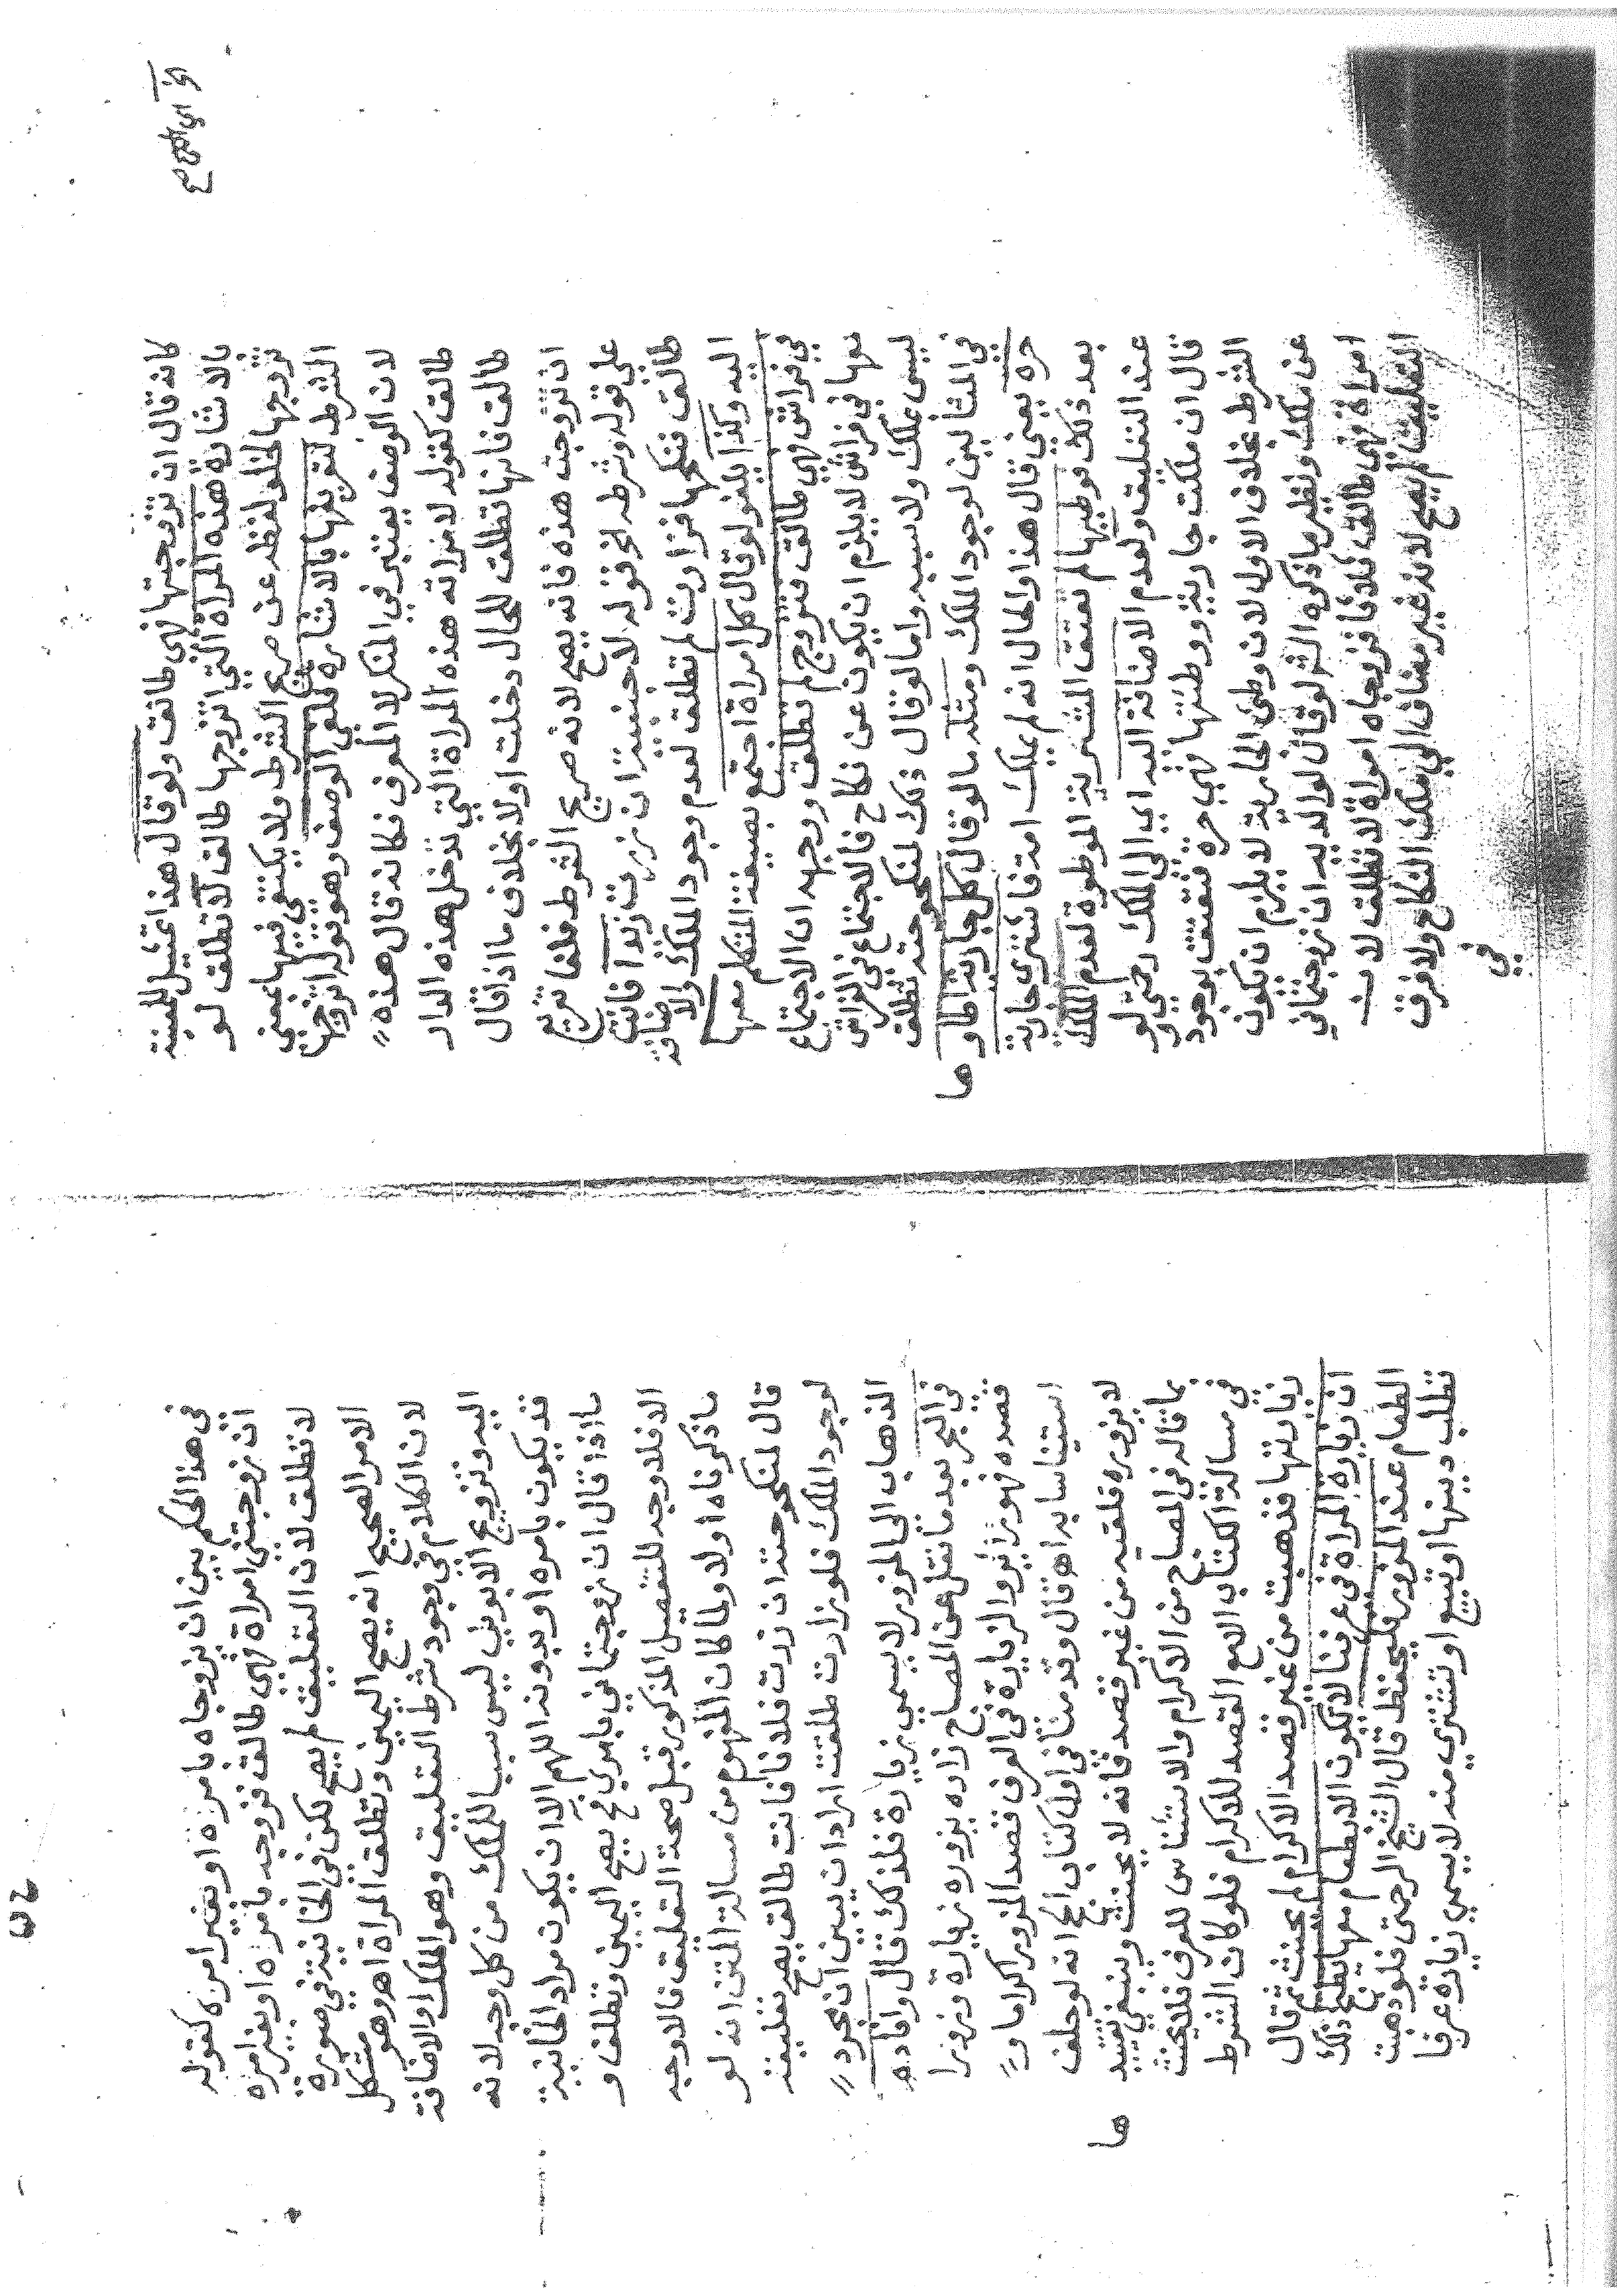 كانه قال ان تزوجتها فهي طالق ولو قال هذا تمثيل للمعينة
بالاشارة هذه المراة التي اتزوجها طالق لا تطلق لو
تزوجها لخلو لفظه عن صريح الشرط ولا يكتفي فيها بمعنى
الشرط لتعريفها بالاشارة فلغى الوصف وهو قوله اتزوجها
لان الوصف يعتبر في المنكر لا المعرف فكانه قال هذه
طالق كقوله لامراته هذه المراة التي تدخل هذه الدار
طالق فانها تطلق للحال دخلت اولا بخلاف ما اذا قال
ان تزوجت هذه فانه يصح لانه صريح الشرط فلغا تفريع
على قوله وشرطه نحو قوله لاجنبية ان زرت زيدا فانت
طالق فنكحها فزارت لم تطلق لعدم وجود الملك ولا الاضافة
اليه وكذا يلغو لو قال كل امراة اجتمع بصيغة المتكلم معها
في فراش فهي طالق فتزوج لم تطلق ووجهه ان الاجتماع
معها في فراش لا يلزم ان يكون عن نكاح فالاجتماع في الفراش
ليس بملك ولا سببه واما لو قال ذلك لمنكوحته تطلق
في المثالين لوجود الملك ومثله ما لو قال كل جارية اطاوها
حرة يعني قال هذا والحال انه لم يملك امة فاشترى جارية
بعد ذلك فوطيها لم تعتق المشترية الموطوة لعدم الملك
عند التعليق ولعدم الاضافة اليه اي الى الملك رحمتي ولو
قال ان ملكت جارية ووطئتها فهي حرة فتعتق بوجود
الشرط بخلاف الاول لان وطئ الجارية لا يلزم ان يكون
عن ملك ونظير ما ذكره الشر لو قال لوالديه ان زوجتماني
امراة فهي طالق ثلاثا فزوجاه امراة لا تطلق لان
التعليق لم يصح لانه غير مضاف الى ملك النكاح ولا فرق
في
في هذا الحكم بين ان يزوجاه بامره او بغير امره كقوله
ان زوجتني امراة فهي طالق فزوجه بامره او بغير امره
لا تطلق لان التعليق لم يصح لكن في الخانية في صورة
الامر الصحيح انه يصح اليمين وتطلق المراة اهـ وهو مشكل
لان الكلام في وجود شرط التعليق وهو الملك او الاضافة
اليه وتزويج الابوين ليس سببا للملك من كل وجه لانه
قد يكون بامره او بدونه اللهم الا ان يكون مراد الخانية
ما اذا قال ان زوجتماني بامري فح يصح اليمين وتطلق و
الا فلا وجه للتفصيل المذكور قبل صحة التعليق فالاوجه
ما ذكرناه اولا ولما كان المفهوم من مسالة المتن انه لو
قال لمنكوحته ان زرت فلانا فانت طالق يصح تعليقه
لوجود الملك فلو زارت طلقت اراد ان يبين ان مجرد
الذهاب الى المزور لا يسمى زيارة فلذلك قال وافاده
في البحر بعد ما نقل عن المصباح زاره يزوره زيارة وزورا
قصده فهو زائر والزيارة في العرف قصد المزور اكراما و
استيناسا به اهـ قال وقدمنا في اول كتاب الحج انه لو حلف
لا يزوره فلقيه من غير قصد فانه لا يحنث وينبغي تقييد ها
بما قاله في المصباح من الاكرام والاستئناس للعرف فلا يحنث
في مسالة الكتاب الامع القصد للاكرام فلو كان الشرط
زيارتها فذهبت من غير قصد الاكرام لم يحنث ثم قال
ان زيارة المراة في عرفنا لا تكون الا بطعام معها يطبخ ذلك
الطعام عند المزور فليحفظ قال الشيخ الرحمتي فلو ذهبت
تطلب دينها او تبيع او تشتري منه لا يسمى زيارة عرفا